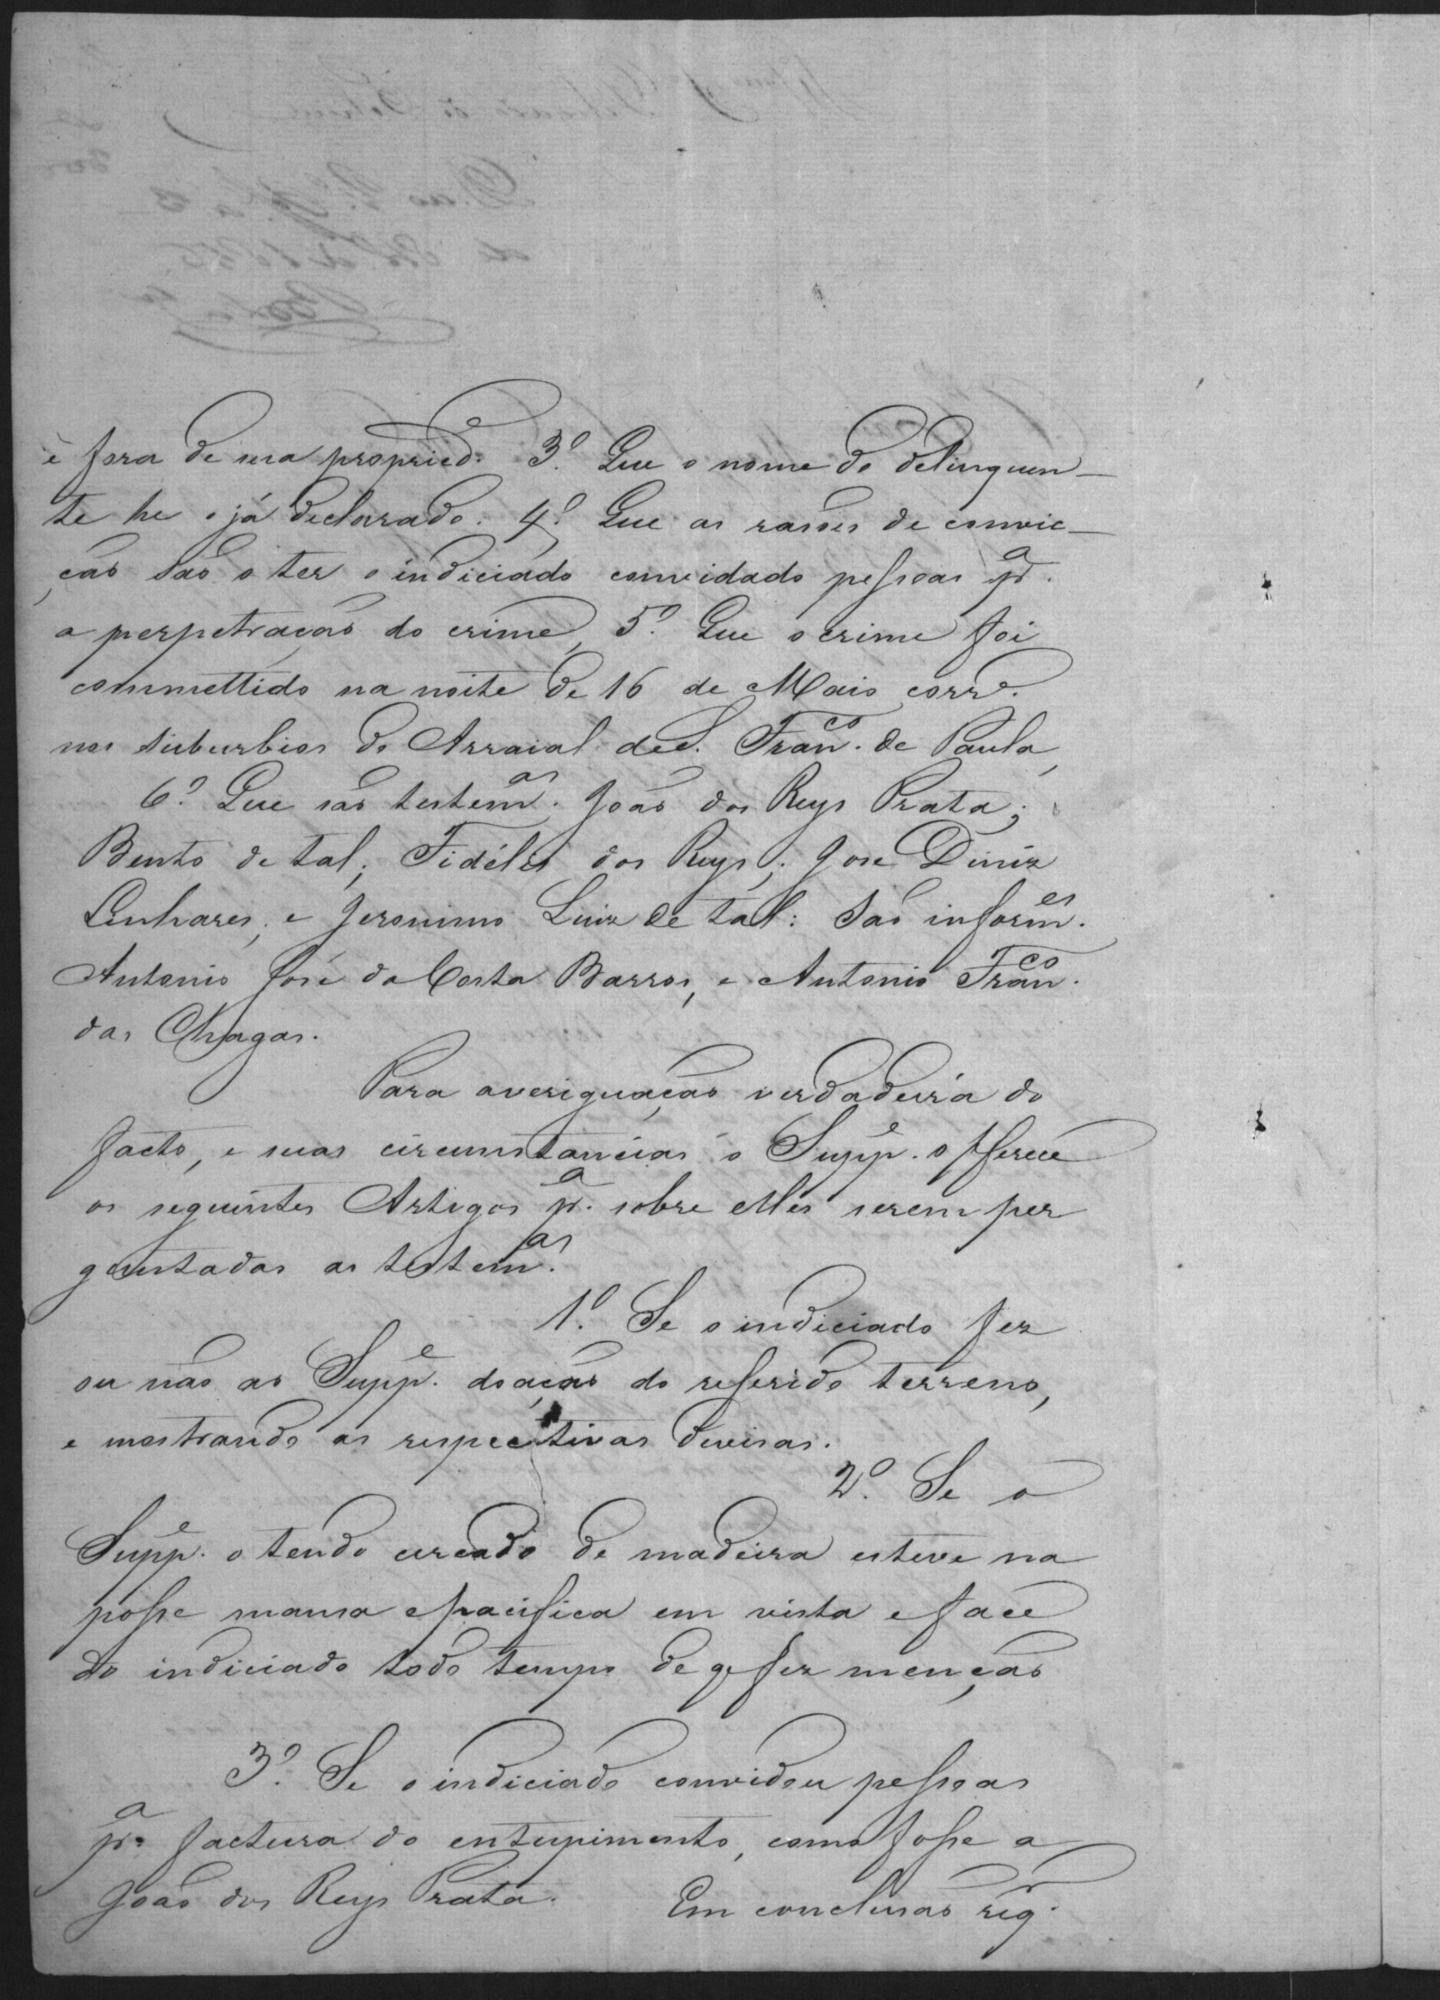 e fora de sua propried.e 3.º Que o nome do delinquen-
te he o já declarado. 4.º Que as rasões de convic-
ção são o ter o indiciado convidado pessoas p.a
a perpetração do crime, 5.º Que o crime foi
commettido na noite de 16 de Maio corr.e
nos suburbios do Arraial de S. Fran.co de Paula,
6.º Que são testem.as João dos Reys Prata;
Bento de tal; Fidélis dos Reys; Jose Diniz
Linhares; e Jeronimo Luiz de tal: São inform.es
Antonio José da Costa Barros, e Antonio Fran.co
das Chagas.
Para averiguação verdadeira do
facto, e suas circumstancias o Supp.e offerece
os seguintes Artigos p.a sobre elles serem per
guntadas as testem.as
1.º Se o indiciado fez
ou não ao Supp.e doação do referido terreno,
e mostrando as respectivas devisas.
2.º Se o
Supp.e o tendo cercado de madeira esteve na
posse mansa e pacifica em vista e face
do indiciado todo tempo de q fez menção
3.º Se o indiciado convidou pessoas
p.a factura do entupimento, como fosse a
João dos Reys Prata. Em conclusão req.r